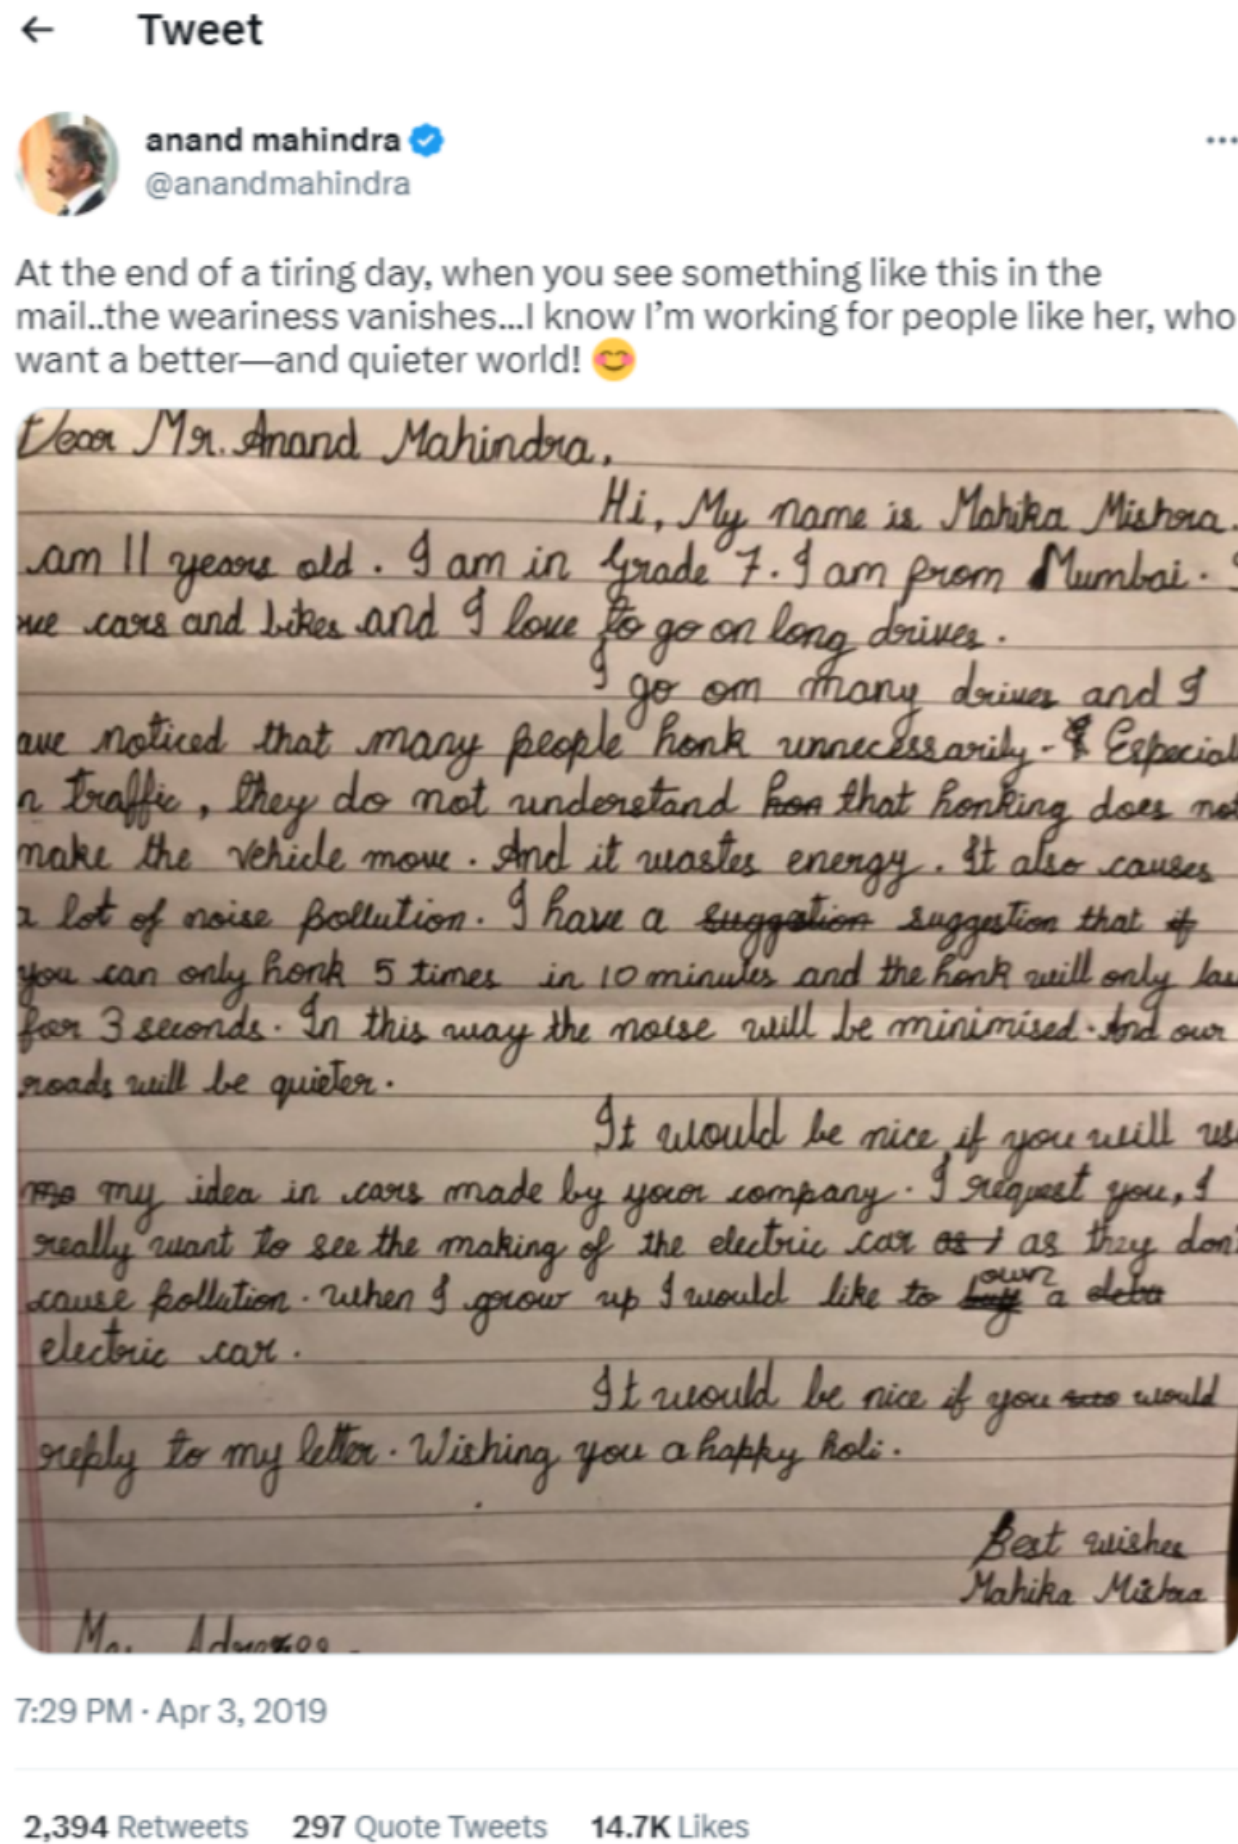 Tweet
anand mahindra
@anandmahindra
At the end of a tiring day, when you see something like this in the
mail..the weariness vanishes...I know I’m working for people like her, who
want a better—and quieter world! 😊
Dear Mr. Anand Mahindra,
Hi, My name is Mahika Mishra.
am 11 years old. I am in Grade 7. I am from Mumbai. I
ove cars and bikes and I love to go on long drives.
I go on many drives and I
ave noticed that many people honk unnecessarily. Especial
n traffic, they do not understand hon that honking does not
make the vehicle move. And it wastes energy. It also causes
a lot of noise pollution. I have a suggstion suggestion that if
you can only honk 5 times in 10 minutes and the honk will only las
for 3 seconds. In this way the noise will be minimised. And our
roads will be quieter.
It would be nice if you will us
my idea in cars made by your company. I request you, I
really want to see the making of the electric car as as they don'
cause pollution. when I grow up I would like to buy own a
electric car.
It would be nice if you would
reply to my letter. Wishing you a happy holi.
Best wishes
Mahika Mishra
7:29 PM · Apr 3, 2019
2,394 Retweets 297 Quote Tweets 14.7K Likes